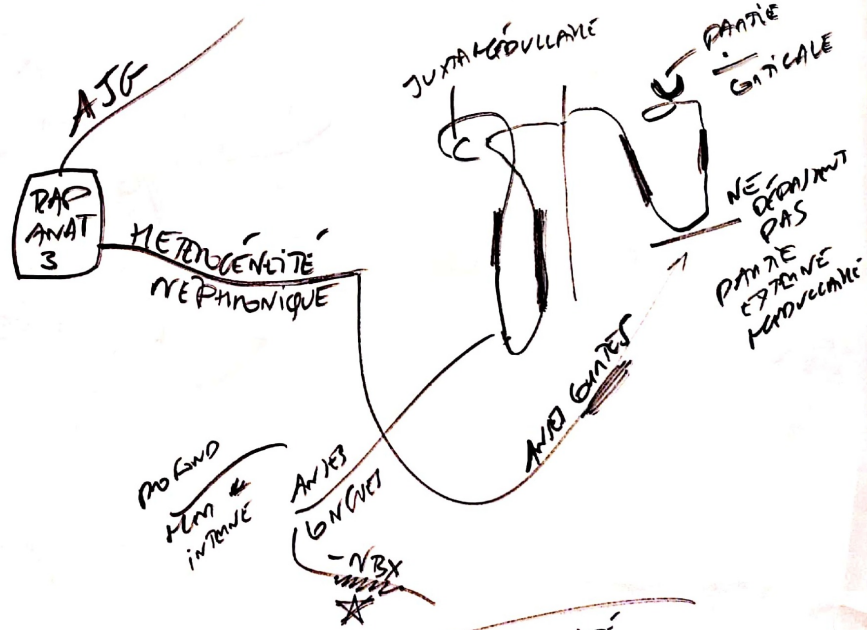 AJG
RAP
ANAT
3
HÉTÉROGÉNÉITÉ
NÉPHRONIQUE
JUXTAMÉDULLAIRE
PARTIE
CORTICALE
NE
DÉPASSENT
PAS
PARTIE
EXTERNE
MÉDULLAIRE
ANSES COURTES
ANSES
LONGUES
PROFOND
INTERNE
- NBX